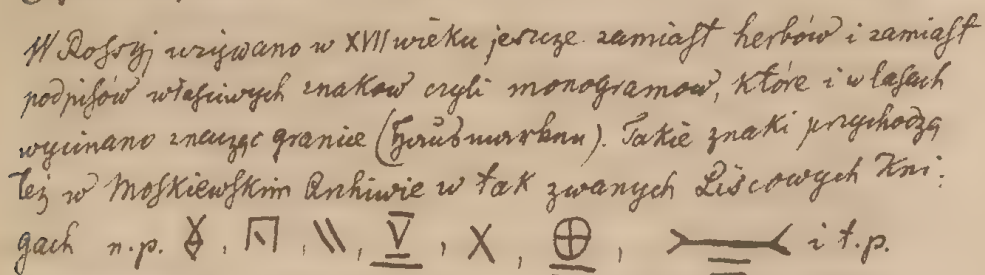 W Rossyj używano w XVII wieku jeszcze zamiast herbów i zamiast
podpisów własciwych znakow czyli monogramow, które i w lasach
wycinano znacząc granice (Hausmarken). Takie znaki przychodzą
też w Moskiewskim Arhiwie w tak zwanych Liscowych Kni:
gach n.p. , , , , X , , i t.p.